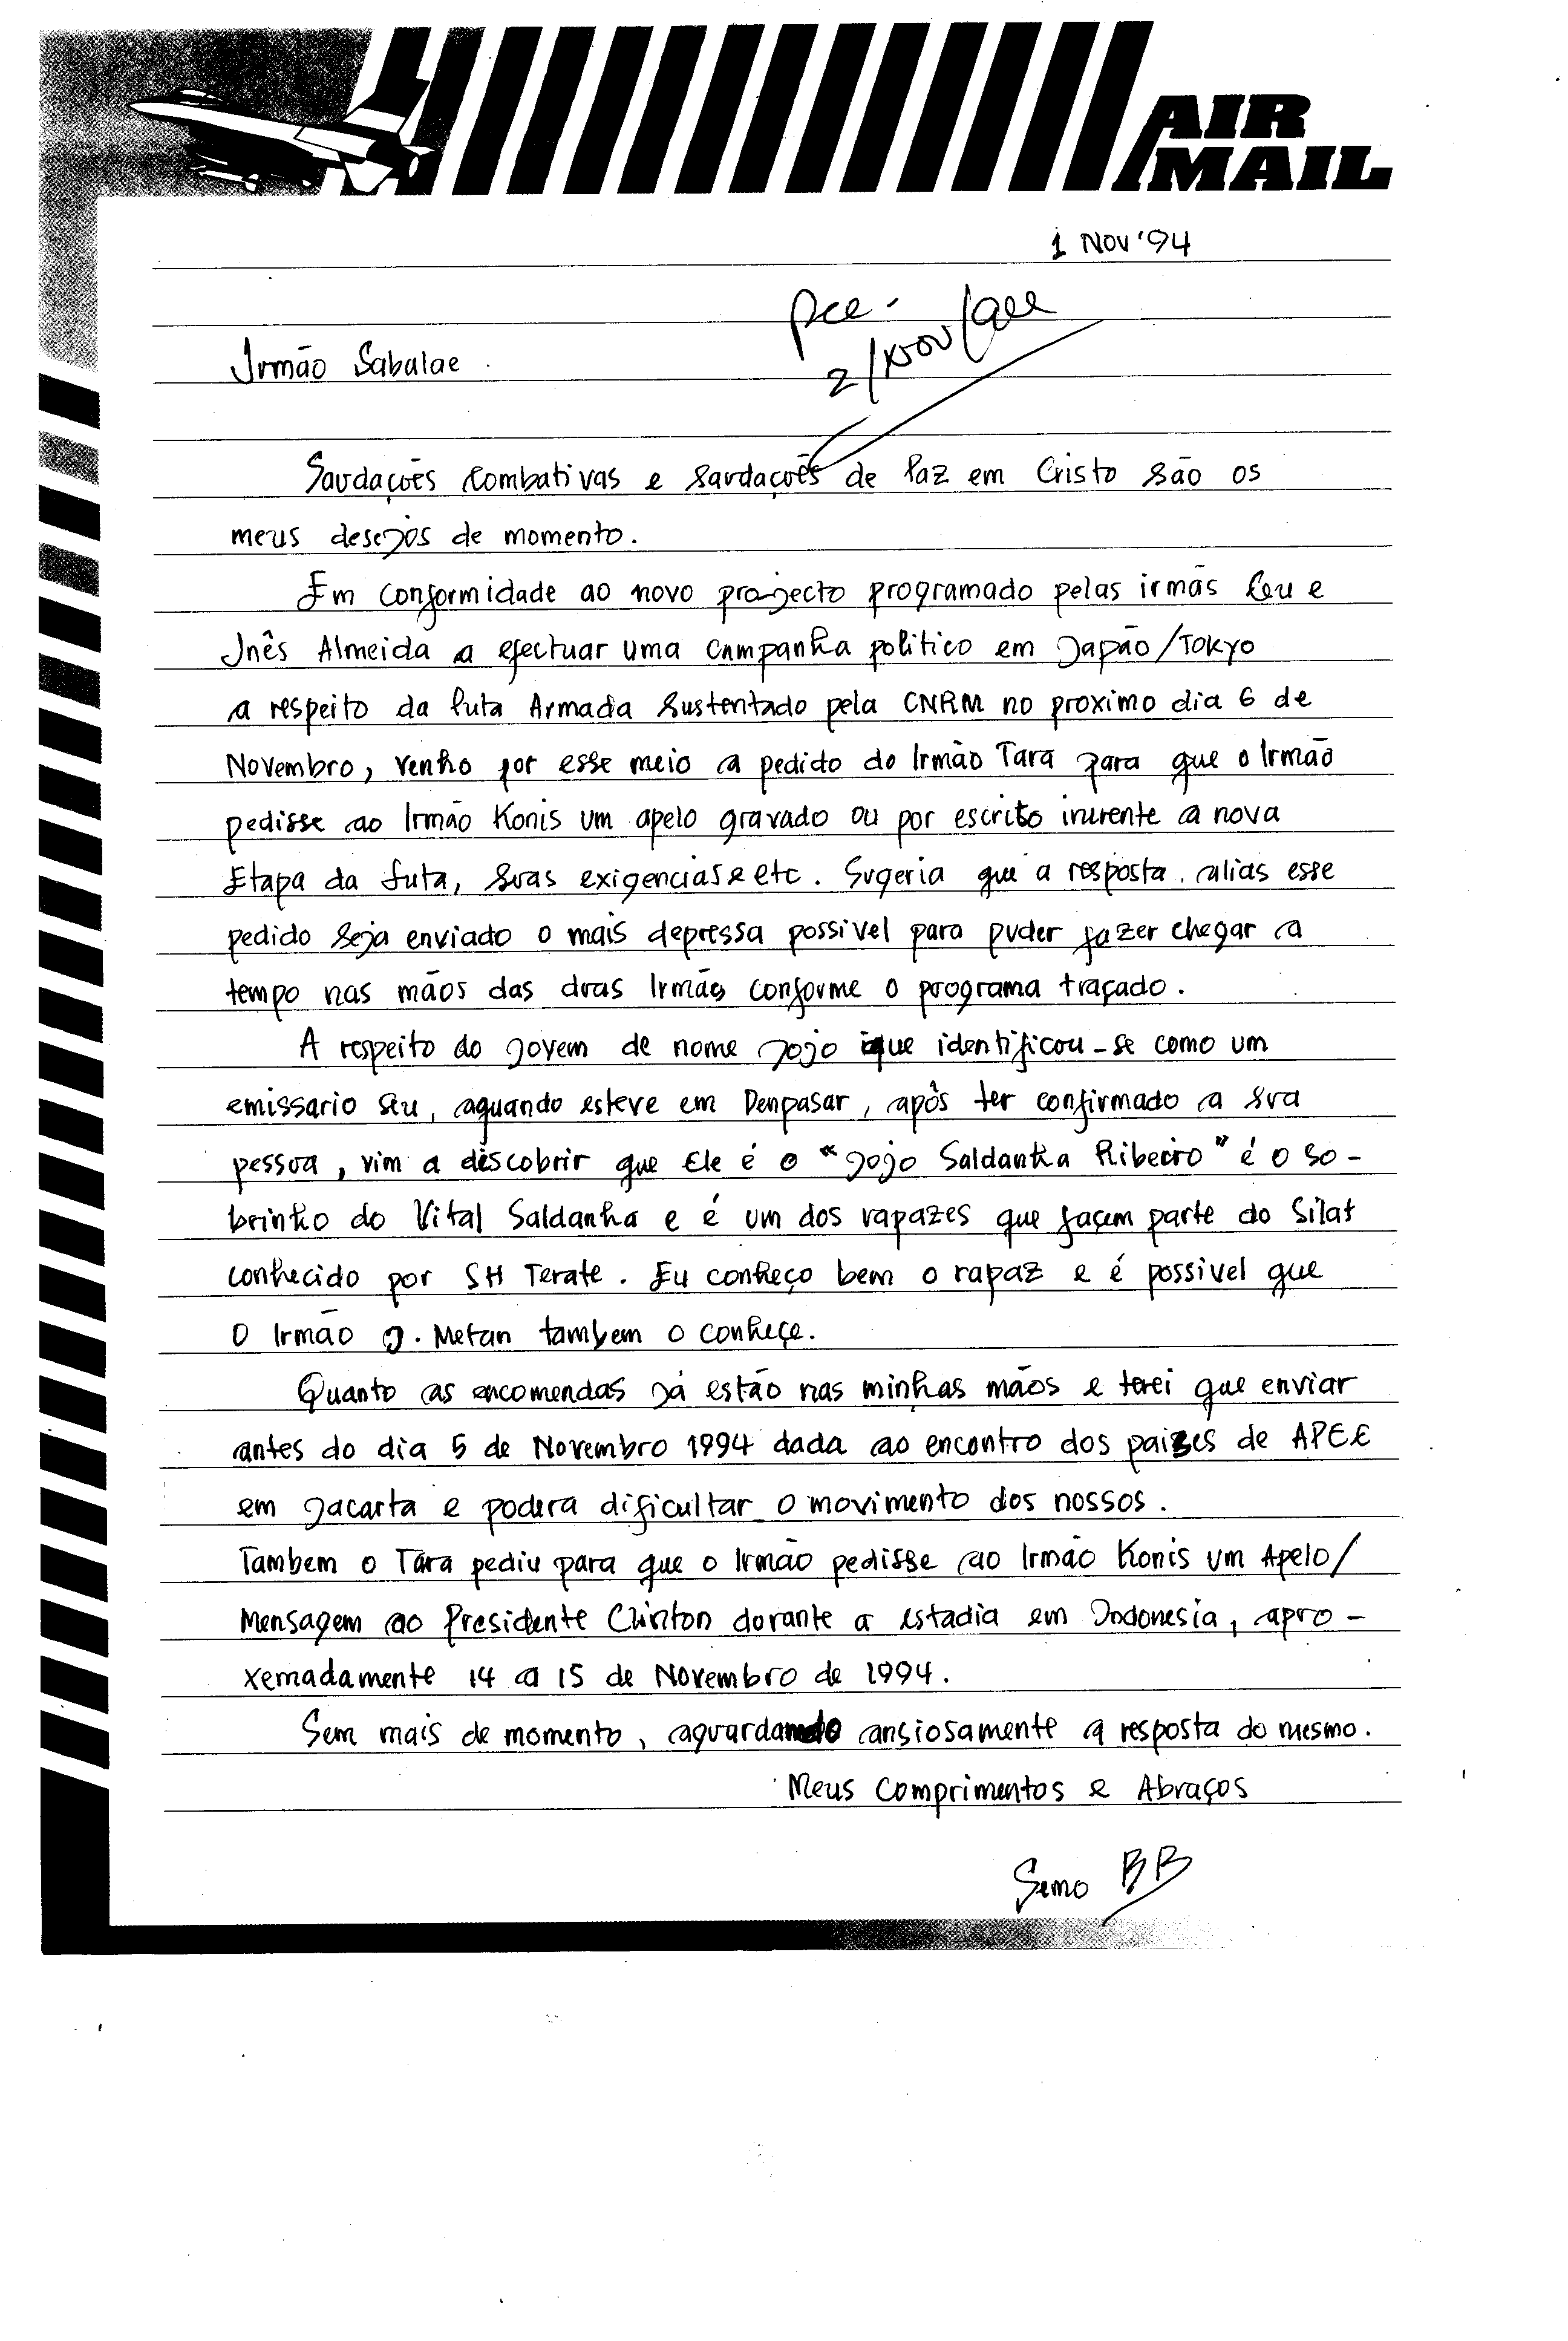 AIR
MAIL
1 NOV '94
Rec -
2/Nov/94
Irmão Sabalae
Saudações Combativas e saudações de Paz em Cristo são os
meus desejos de momento.
Em conformidade ao novo projecto programado pelas irmãs Céu e
Inês Almeida a efectuar uma campanha politico em Japão/TOKYO
a respeito da luta Armada sustentado pela CNRM no proximo dia 6 de
Novembro, venho por esse meio a pedido do Irmão Tara para que o Irmão
pedisse ao Irmão Konis um apelo gravado ou por escrito inerente a nova
Etapa da luta, suas exigencias e etc. Sugeria que a resposta. alias esse
pedido seja enviado o mais depressa possivel para puder fazer chegar a
tempo nas mãos das duas Irmãs conforme o programa traçado.
A respeito do jovem de nome Jojo que identificou-se como um
emissario seu, aquando esteve em Denpasar, após ter confirmado a sua
pessoa, vim a descobrir que Ele é o "Jojo Saldanha Ribeiro" é o so-
brinho do Vital Saldanha e é um dos rapazes que façem parte do Silat
conhecido por SH Terate. Eu conheço bem o rapaz e é possivel que
O Irmão J. Metan tambem o conheçe.
Quanto as encomendas já estão nas minhas mãos e terei que enviar
antes do dia 5 de Novembro 1994 dada ao encontro dos paises de APEC
em Jacarta e podera dificultar o movimento dos nossos.
Tambem o Tara pediu para que o Irmão pedisse ao Irmão Konis um Apelo/
Mensagem ao Presidente Clinton durante a estadia em Indonesia, apro-
xemadamente 14 a 15 de Novembro de 1994.
Sem mais de momento, aguardando ansiosamente a resposta do mesmo.
Meus Comprimentos e Abraços
Semo BB